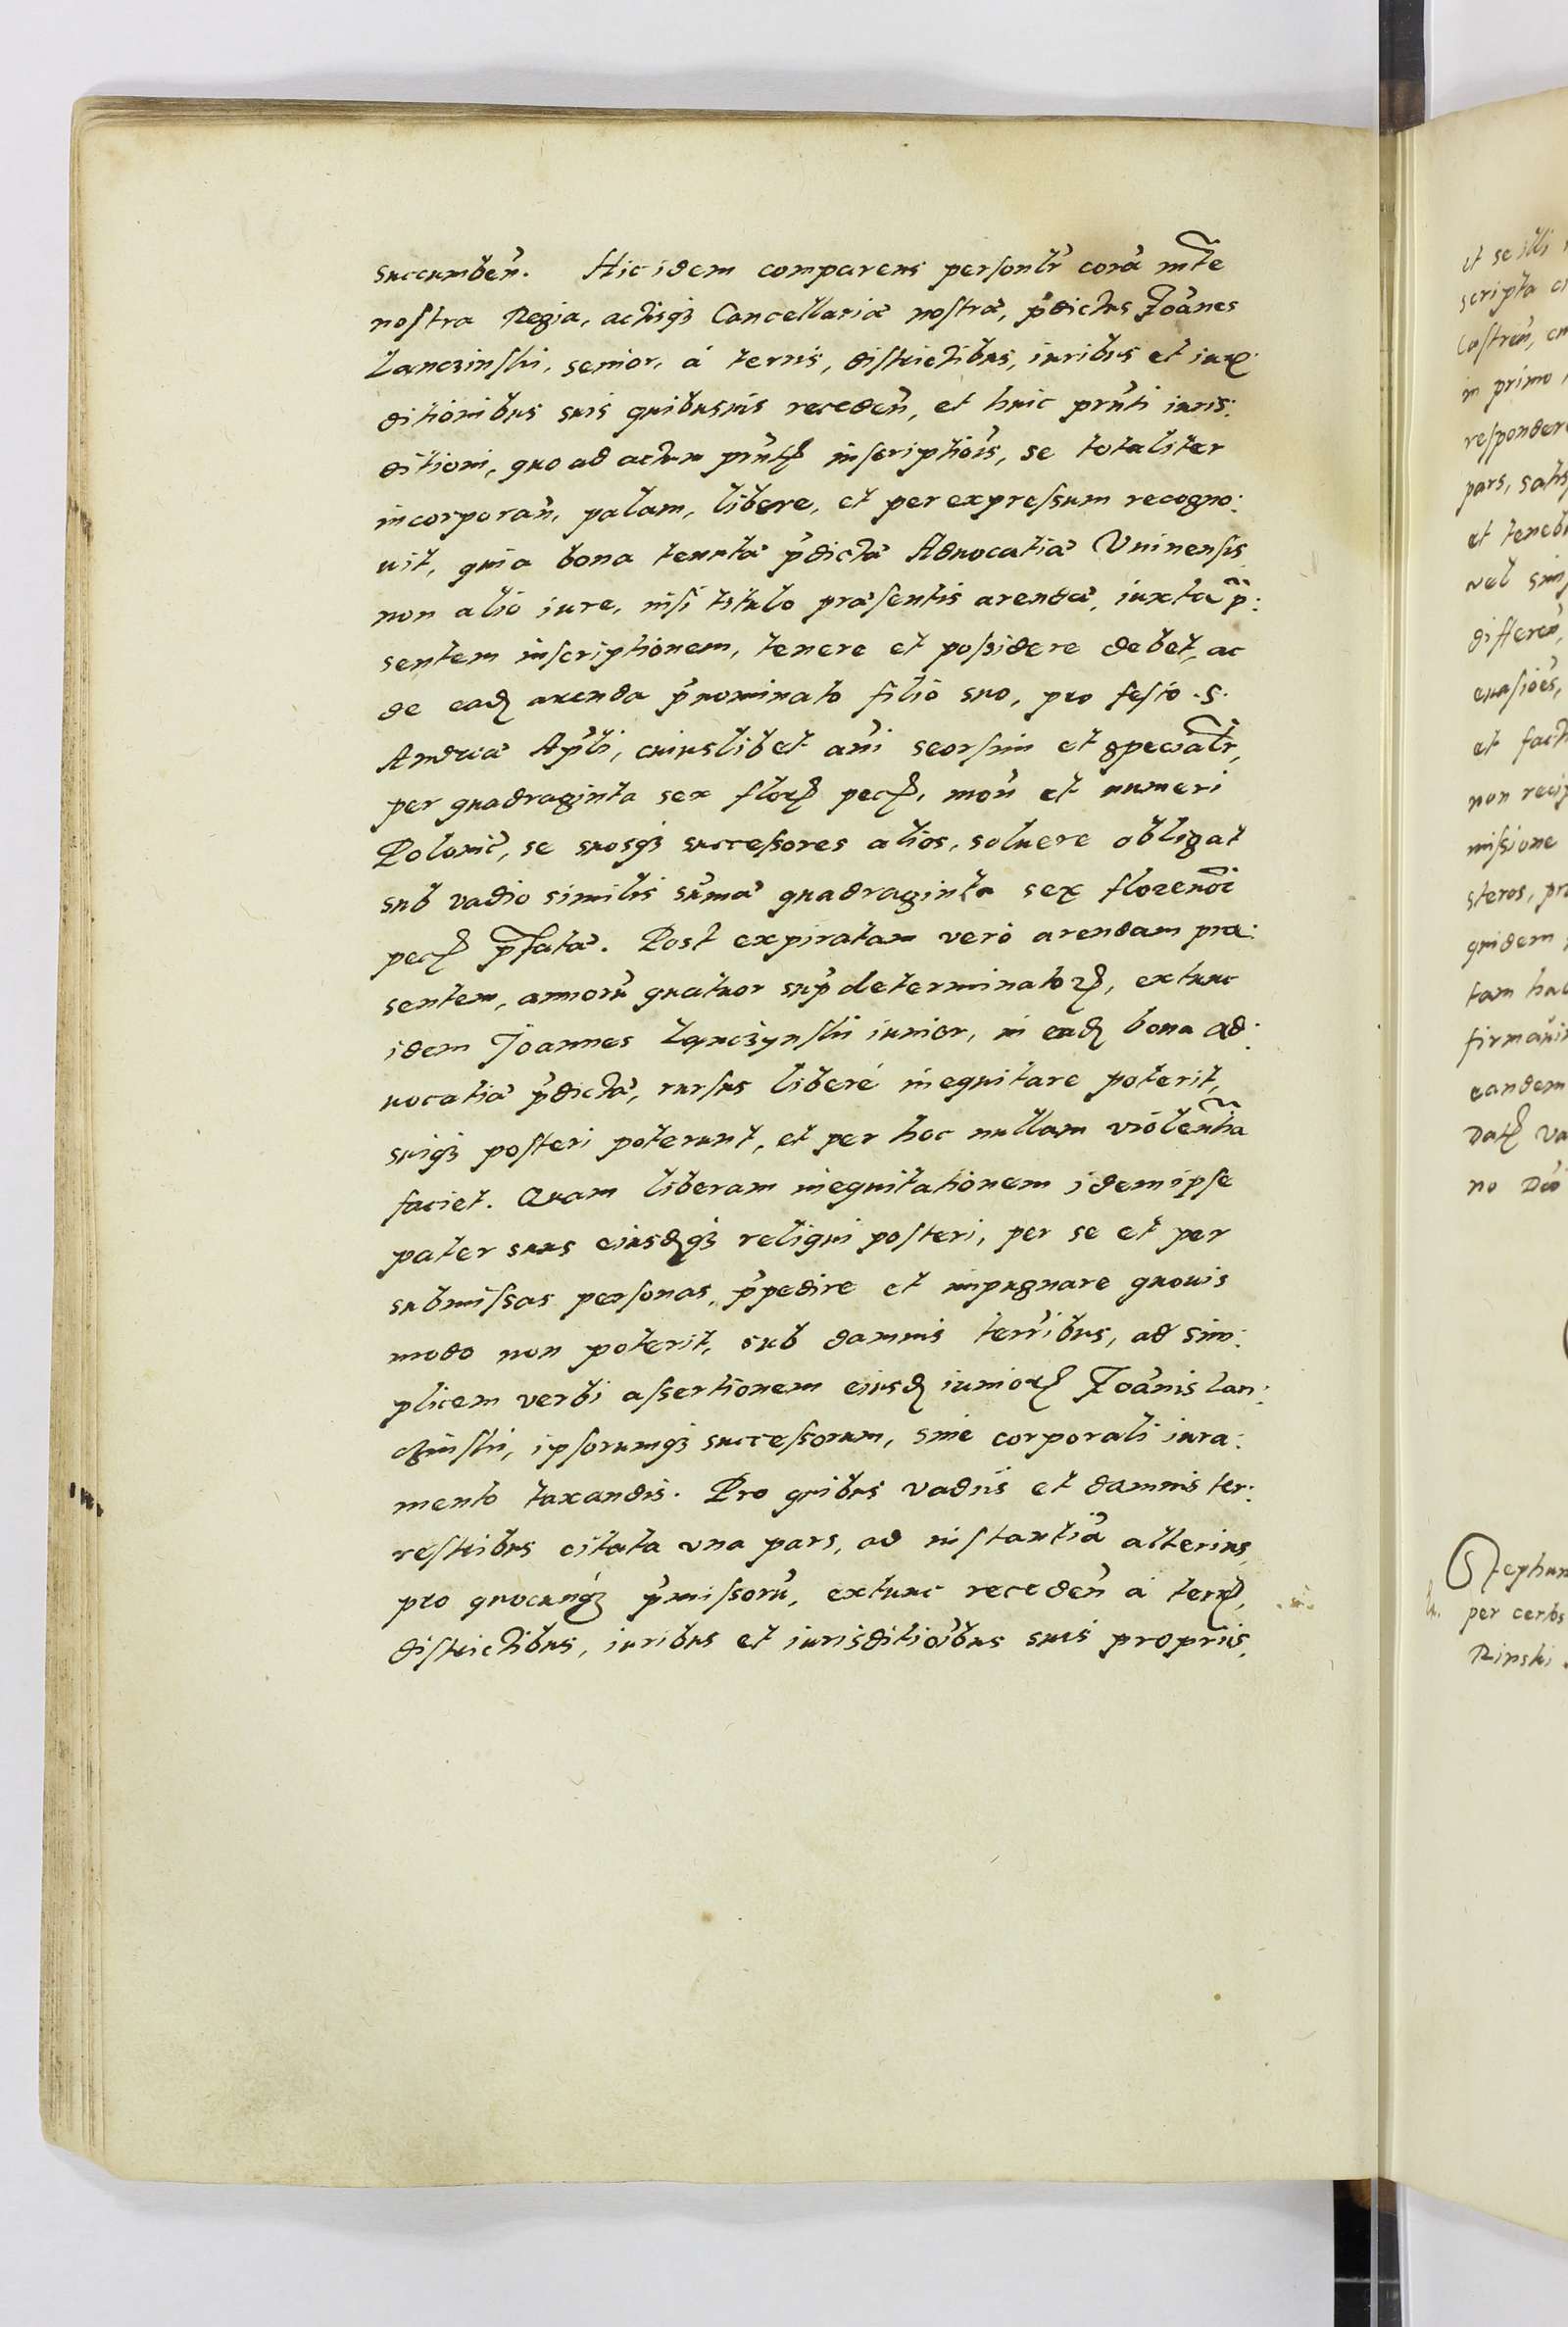 succumbeñ. Hic idem comparens personlr̃ corã mte
nostra Regia, actisqȝ Cancellariæ nostræ, p̃dictus Joãnes
Lanczinski, senior, à terris, districtibus, iuribus et iurꝭ
ditionibus suis quibusuis recedeñ, et huic prñti iuris:
ditioni, quo ad actum prñtꝭ inscriptiõis, se totaliter
incorporañ, palam, libere, et per expressum recogno:
uit, quia bona tenutæ p̃dictæ Aduocatiæ Vninensis
non alio iure, nisi titulo præsentis arendæ, iuxta p̃:
sentem inscriptionem, tenere et possidere debet, ac
de eadꝫ arenda p̃nominato filio suo, pro festo .S.
Andreæ Apli, cuiuslibet añi seorsim et specialr̃,
per quadraginta sex florꝭ pecꝭ, moñ et numeri
Poloniĉ, se suosqȝ successores alios, soluere obligat
sub vadio similis sum̃æ quadraginta sex florenoꝝ
pecꝭ p̃fatæ. Post expiratam verò arendam præ:
sentem, annorũ quatuor sup̃determinatoꝝ, extunc
idem Joannes Lanczynski iunior, in eadꝫ bona ad:
uocatiæ p̃dictæ, rursus liberè inequitare poterit,
suiqȝ posteri poterunt, et per hoc nullam violentiã
faciet. Quam liberam inequitationem idem ipse
pater suus eiusdꝫqȝ reliqui posteri, per se et per
submissas personas, p̃pedire et impugnare quouis
modo non poterit, sub damnis terr̃ibus, ad sim:
plicem verbi assertionem eiusdꝫ iuniorꝭ Joãnis Lan:
czinski, ipsorumqȝ successorum, sine corporali iura:
mento taxandis. Pro quibus vadiis et damnis ter:
restribus citata vna pars, ad instantiã alterius,
pro quocunqȝ p̃missorũ, extunc recedeñ à terrꝭ,
districtibus, iuribus et iurisditiõibus suis propriis,
et se illi
scripta
Castreñ,
in primo
respondere
pars,
et
vel
differeñ,
euasiões,
et
non
missione
steros,
quidem
tam
eandem
Datꝭ
no Dñi
Stephan
per certos
Rinski